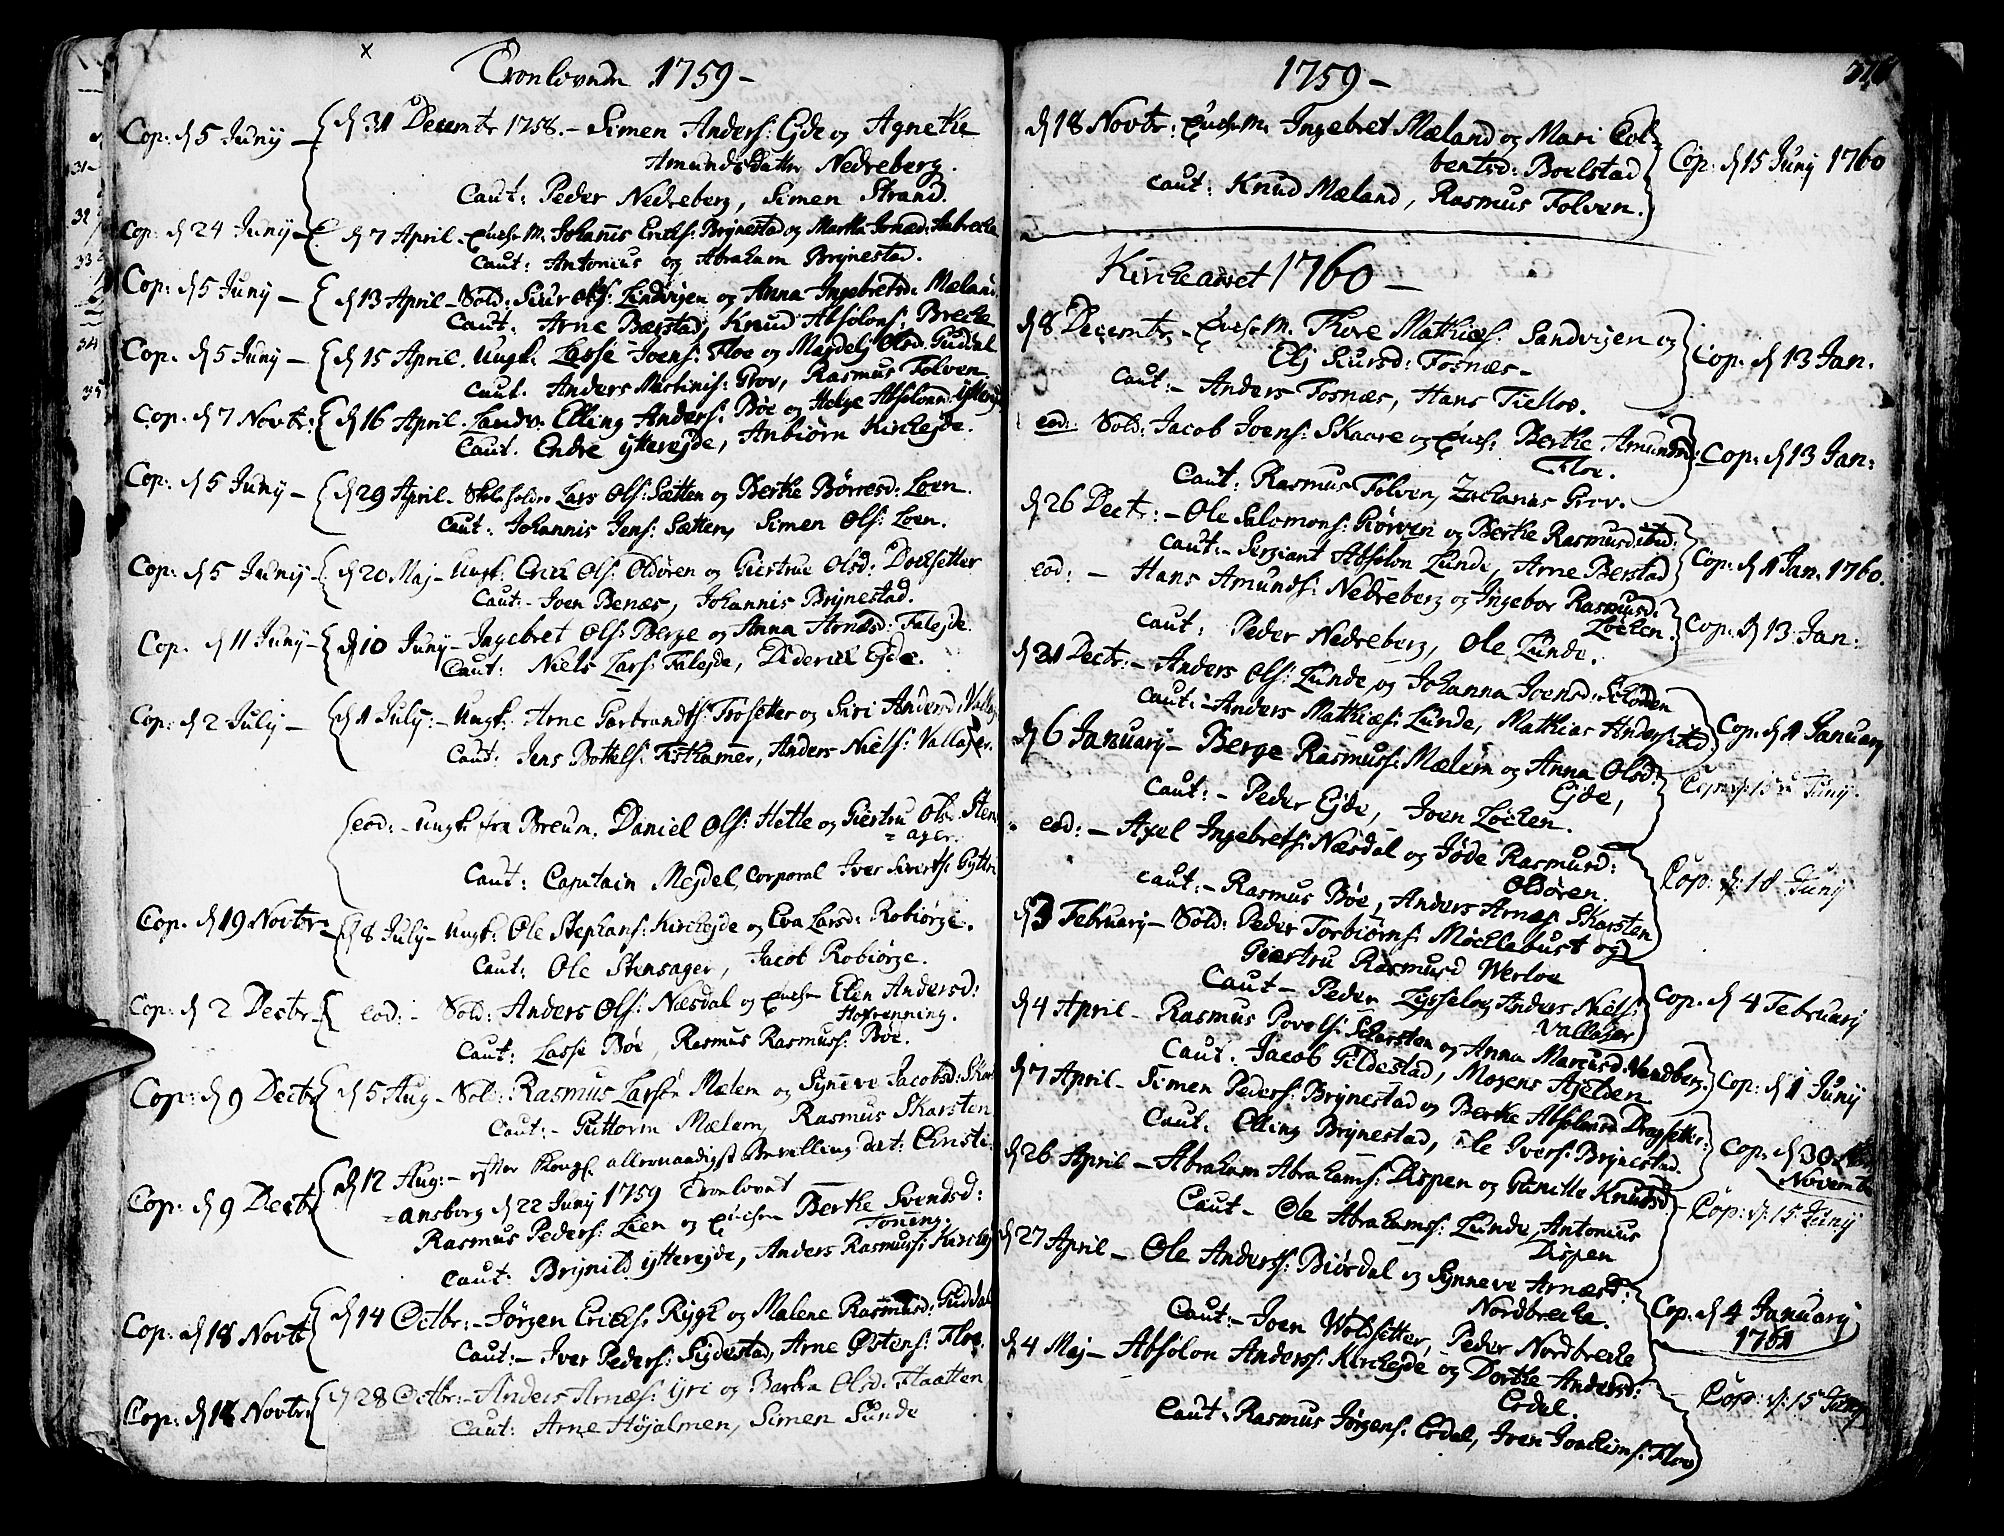 Tronlovede 1759 -
Cop: d 5 Junÿ - d 31 Decembr 1758. - Simen Anders: Eyde og Agnethe
Amundsdatter Nedreberg.
Caut: Peder Nedreberg, Simen Strand.
Cop: d 24 Junÿ - d 7 April - Enche M. Johanis Erichs: Brÿnestad og Martha
Caut: Antonius og Abraham Brÿnestad.
Cop: d 5 Junÿ - d 13 April - Sold: Siur Ols: Sandvigen og Anna Ingebretsd: Mæland
Caut: Arne Bærstad, Knud Absolons: Breche
Cop: d 5 Junÿ - d 15 April. Ungk: Lasse Joens: Floe og Magdeli Olsd: Guddal
Caut. Anders Martinis: Grov, Rasmus Folven.
Cop: d 7 Novbr: d 16 April. Landv: Elling Anders: Bøe og Helge Absolond: Ÿttereyde
Caut. Endre ÿttereÿde, Anbiørn Kircheÿde.
Cop: d 5 Junÿ - d 29 April - Lars Ols: Sætten og Berthe Børresd: Loen.
Caut: Johannis Jens: Sætten, Simen Ols: Loen.
Cop: d 5 Junÿ - d 20 Maj - Ungk: Erich Ols: Oldøren og Giertrue Olsd: Dochsetter
Caut: - Joen Benæs, Johannis Brÿnestad.
Cop. d 11 Junÿ - d 10 Junÿ - Ingebret Ols: Berge og Anna Arnesd: Faleÿde.
Caut: Niels Lars: Faleÿde, Diderich Eÿde.
Cop: d 2 Julÿ - d 1 Julÿ: - Ungk: Arne Garbrandts: Trosetter og Siri Andersd: Vallager
Caut: Jens Bottels: Fisthamer, Anders Niels: Vallager.
eod: - Ungk: fra Breum. Daniel Ols: Hette og Giertru Olsd: Stens
= ager.
Caut: Capitain Mejdel, Corporal Iver Siverts: Gÿttri
Cop. d 19 Novbr - d 8 Julÿ - Ungk: Ole Stephans: Kircheÿde og Eva Larsd: Robiørge.
Caut: Ole Stensager, Jacob Robiørge.
Cop: d 2 Decbr - eod: - Sold: Anders Ols: Næsdal og Enche Elen Andersd:
Hofrenning.
Caut: Lasse Bøe, Rasmus Rasmuss: Bøe.
Cop: d 9 Decbr d 5 Aug - Sold: Rasmus Larsøn Mælem og Sÿneve Jacobsd: Skar
Caut: - Guttorm Mælem, Rasmus Skarsten
Cop: d 9 Decbr d 12 Aug: - efter Kongl: allernaadigst Bevilling dat: Christi
= ansborg d 22 Junÿ 1759 Tronlovet
Rasmus Peders: Lien og Enche Berthe Svendsd:
Toning.
Caut: Brÿnild ÿttereÿde, Anders Rasmuss: Kircheÿ
Cop: d 18 Novbr d 14 Octbr: - Jørgen Erichs: Rÿgg og Malene Rasmusd: Guddal
Caut: - Iver Peders: Sigdestad, Arne Østens: Floe.
Cop: d 18 Novbr d 28 Octbr: - Anders Arnes: Ÿri og Barbra Olsd: Flaatten
Caut: Arne Højalmen, Simen Sunde
1759 -
d 18 Novbr: Enche M. Ingebret Mæland og Mari Col=
bentsd: Boelstad Cop: d 15 Junÿ 1760
Caut: Knud Mæland, Rasmus Folven.
Kircheaaret 1760 -
d 8 Decembr. - Enche M. Thore Mathies: Sandvigen og
Eli Siursd: Tosnæs - Cop: d 13 Jan.
Caut: - Anders Tosnæs, Hans Tielloe.
eod: Sold: Jacob Joens: Skaare og Enche: Berthe Amundsd:
Floe. Cop: d 13 Jan:
Caut: Rasmus Folven, Zacharias Grov.
d 26 Decbr: - Ole Salomons: Giørven og Berthe Rasmusd: ibid:
Caut: - Sergiant Absolon Lunde, Arne Berstad Cop: d 1 Jan. 1760.
eod: - Hans Amunds: Nedreberg og Ingebor Rasmusd:
Løchen. Cop: d 13 Jan:
Caut: Peder Nedreberg, Ole Lunde.
d 31 Decbr: - Anders Ols: Lunde og Johanna Joensd:
Caut: - Anders Mathies: Lunde, Mathias Anders: ibid Cop: d 1 Januarÿ
d 6 Januarÿ - Berge Rasmuss: Mælem og Anna Olsd:
Eÿde, Cop: d: 15 Junÿ.
Caut: - Peder Eÿde, Joen Løchen.
eod: - Axel Ingebrets: Næsdal og Jøde Rasmusd:
Oldøren. Cop: d: 18 Junÿ
Caut: - Rasmus Bøe, Anders Arnes. Skarsten
d 3 Februarÿ - Sold: Peder Torbiørns: Møchlebust og
Giærtru Rasmusd Werloe
Caut - Peder Lÿsseloe, Anders Niels: Vallager Cop. d 4 Februarÿ
d 4 April - Rasmus Povels: Scharsten og Anna Marcusd: Vandberg.
Caut. Jacob Gildestad, Mogens Axelden Cop: d 1 Junÿ
d 7 April - Simen Peders: Brÿnestad og Berthe Absolonsd Dragsetter:
Caut: Elling Brÿnestad, Ole Ivers: Brÿnestad. Cop: d 30 Novembr
d 26 April - Abraham Abrahams: Dispen og Gunilde Knudsd
Caut - Ole Abrahams: Lunde, Antonius
Dispen Cop: d: 15 Junÿ
d 27 April - Ole Anders: Biørdal og Sÿnneve Arnesd:
Nordbreche.
Caut: - Joen Woldsetter, Peder Nordbreche Cop. d 4 Januarÿ
1761
d 4 Maj - Absolon Anders: Kircheÿde og Dorthe Andersd:
Erdal. Cop: d: 15 Junÿ
Caut: - Rasmus Jørgens: Erdal, Iven Joachims: Floe